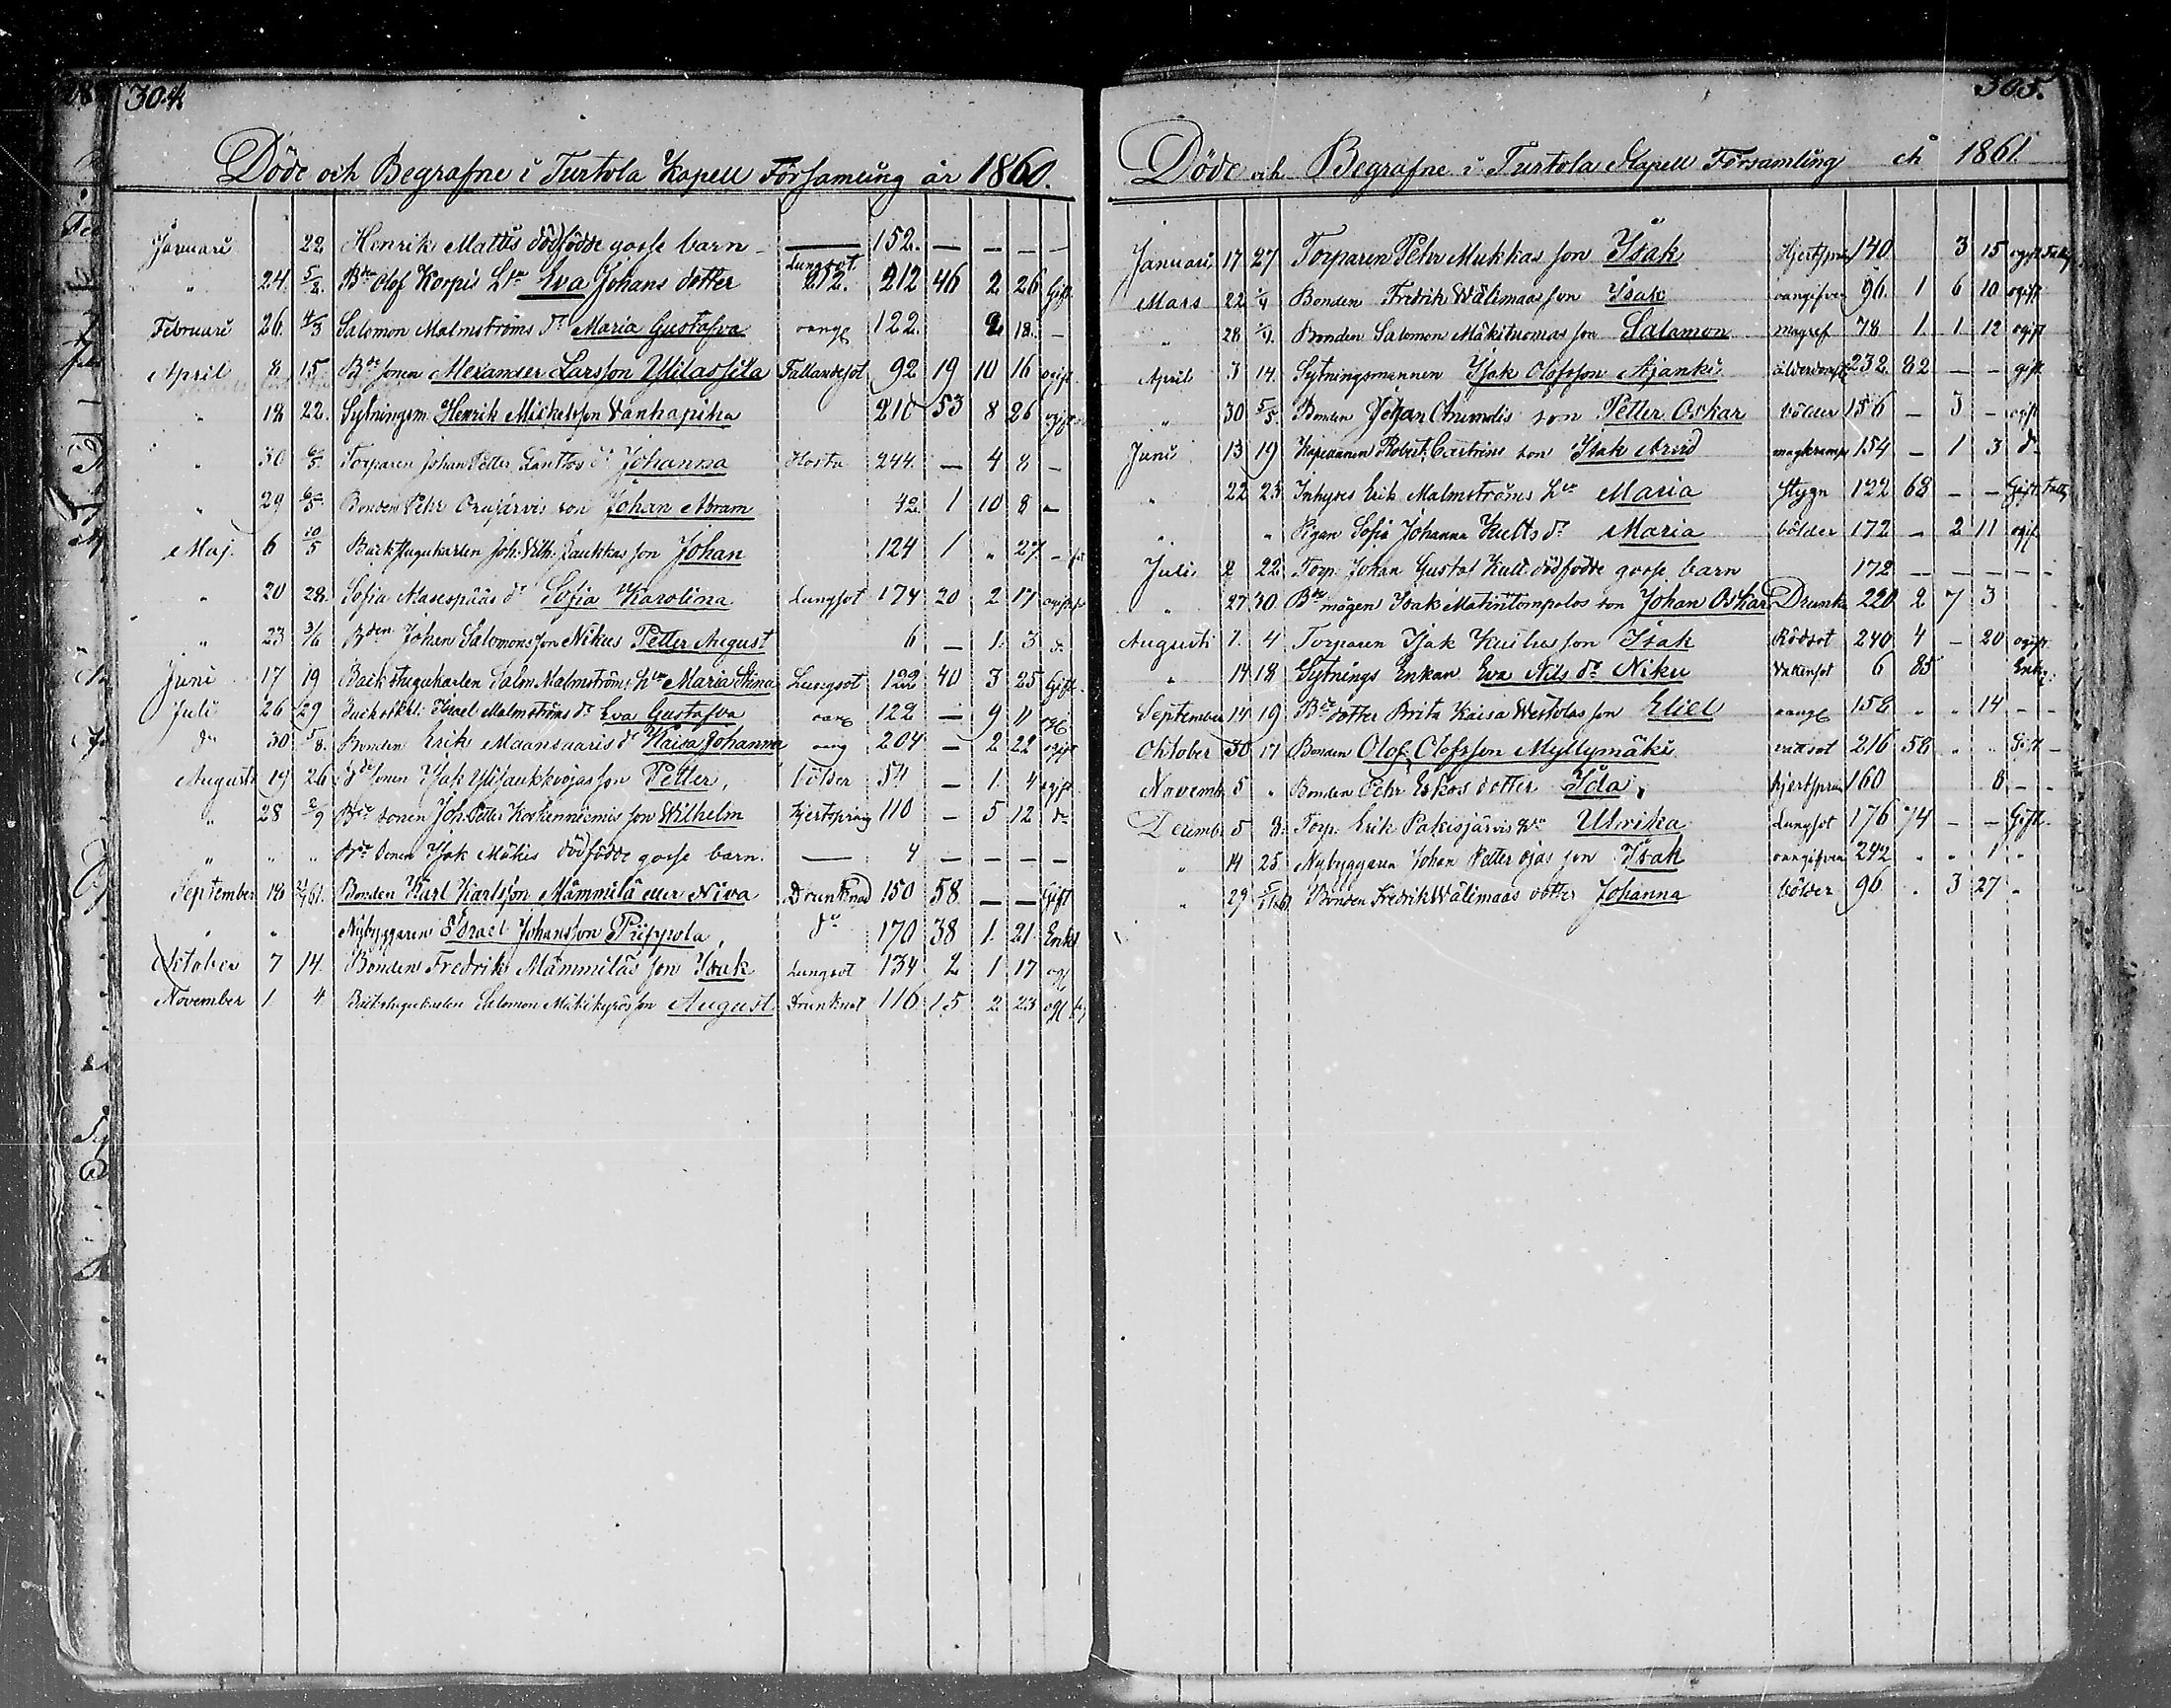 304.
Döde och Begrafne i Turtola Kapell Församling år 1860.
Januari 22 Henrik Mattis dödfödde gosse barn — 152. — — — —
" 24. 5/2. Bdn Olof Korpis Hru Eva Johans dotter Lungsot 212. 212 46 2 26 Gift
Februari 26. 4/3 Salomon Malmströms dr Maria Gustafva oang 122. 2 18. —
April 8 15 Bde sonen Alexander Larsson Ylilassila Fallandesot 92 19 10 16 ogift
" 18 22. Sytningsm. Henrik Mickelsson Vanhapiha 210 53 8 26 ogift
" 30 6/5. Torparen Johan Petter dr Johanna Hosta 244. — 4 8 —
" 29 6/5 Bonden Pehr Orajärvis son Johan Abram 42. 1 10 8 —
Maj. 6 10/5 Backstugukarlen Joh. Wilh. Jaukkas son Johan 124 1 " 27 —
" 20 28. Sofia dr Sofia Karolina Lungsot 174 20 2 17 ogift
" 23 3/6 Bden Johan Salomonsson Nikus Petter August 6 — 1. 3 do
Juni 17 19 Backstugukarlen Salom. Malmströms Hru Maria Stina Lungsot 122 40 3 25 Gift
Juli 26 29 Israel Malmströms dr Eva Gustafva oang 122 — 9 11 og
do 30 5/8. Bonden Erik Maansaaris dr Kaisa Johanna oang 204 — 2 22 ogift
Augusti 19 26 Bde sonen Isak Ylijaukkoojas son Petter, bölder 54 — 1. 4 ogift
" 28 2/9 Bde sonen Joh. Petter Koskenniemis son Wilhelm Hjertspräng 110 — 5 12 do
" " " Bde sonen Isak Mäkis dödfödde gosse barn. — 4 — — — —
September 18 61. Bonden Karl Karlsson Mämmilä eller Niva Drunknad 150 58. — — Gift
" " Nybyggaren Israel Johansson Piippola, do 170 38 1. 21. Enkl
October 7 14. Bonden Fredrik Mämmiläs son Isak Lungsot 134 2 1 17 og
November 1 4 Backstugukarlen Salomon Mäkikyrös son August. Drunknat 116 15 2 23 og
305.
Döde och Begrafne i Turtola Kapell Församling år 1861.
Januari 17 27 Torparen Pehr Mukkas son Isak Hjertspräng 140 3 15 ogift
Mars 22 1/4 Bonden Fredrik Wälimaas son Isak oangifven 96 1 6 10 ogift
" 28 1/4. Bonden Salomon Mäkituomas son Salamon magref 78 1 1 12 ogift
April 3 14. Sytningsmannen Isak Olofsson Ajanki ålderdomsk 232 82 — — gift
" 30 5/5. Bonden Johan son Petter Oskar bölder 156 — 3 — ogift
Juni 13 19 Kapellanen Robert Castréns son Isak Arvid magkramp 154 — 1 3 do
" 22 23 Inhyses Erik Malmströms Hru Maria Stygn 122 68 — — Gift fattig
" " Pigan Sofia Johanna Kults dr Maria bölder 172 — 2 11 ogift
Juli 2 22. Torp. Johan Gustaf Kult dödfödde gosse barn 172 — — — —
" 27 30. Bde mågen Isak Matintompolos son Johan Oskar Drunkn 220 2 7 3
Augusti 1. 4 Torparen Isak son Isak Rödsot 240 4 — 20 ogift
" 14 18 Sytnings Enkan Eva Nils dr Niku Vattensot 6 85 Enka
September 14 19 Bde dotter Brita Kaisa Westolas son Eliel oang 158 " " 14 — —
Oktober 30 17 Bonden Olof Olofsson Myllymäki vattsot 216 58 " " Gift —
Novemb. 5 " Bonden Pehr Eskos dotter Ida, hjertspräng 160 6 — —
Decemb. 5 8. Torp. Erik Pakisjärvis Hru Ulrika Lungsot 176 74 — — Gift.
" 14 25. Nybyggaren Johan Petter ojas son Isak oangifven 242 " " 1 "
" 29 5/1 Bonden Fredrik Wälimaas dotter Johanna bölder 96 . 3 27 .